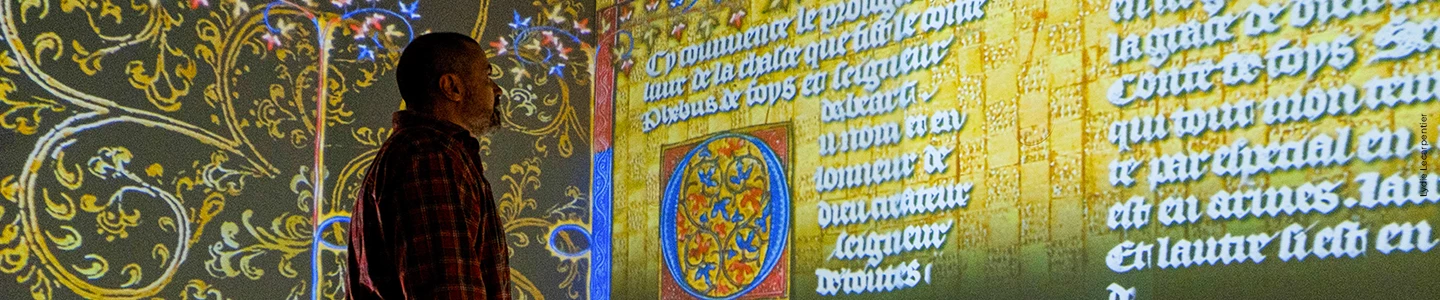 Cy commence le prolog
liure de la chasse que fist le conte
Phebus de foys et seigneur
de bearn
u nom et en
lonneur de
dieu createur
seigneur
de toutes
la grace de dieu
Conte de foys Sei
qui tout mon tem
te par especial en
est en armes. Lau
Et lautre si est en
Lydie Lecarpentier